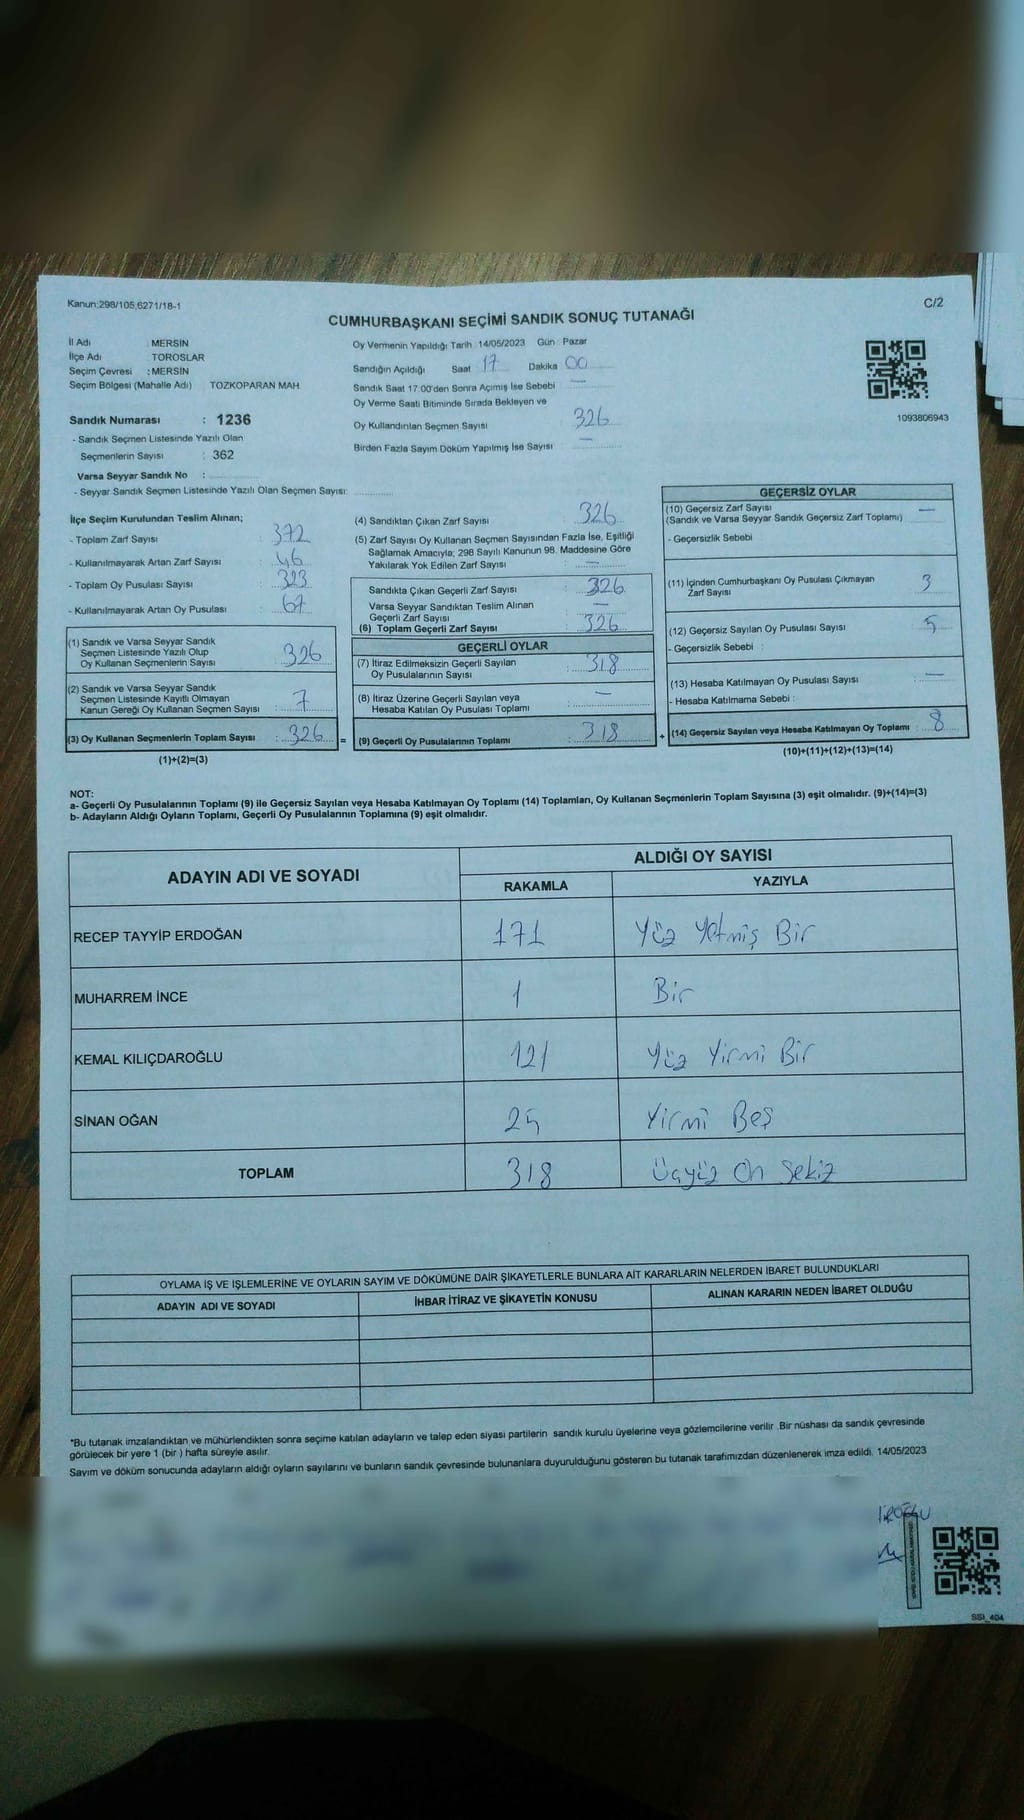 Kanun:298/105,6271/18-1
C/2
CUMHURBAŞKANI SEÇİMİ SANDIK SONUÇ TUTANAĞI
İl Adı : MERSİN
İlçe Adı TOROSLAR
Seçim Çevresi : MERSİN
Seçim Bölgesi (Mahalle Adı) TOZKOPARAN MAH.
Oy Vermenin Yapıldığı Tarih : 14/05/2023 Gün : Pazar
Sandığın Açıldığı Saat 17 Dakika 00
Sandık Saat 17:00'den Sonra Açımış İse Sebebi —
Oy Verme Saati Bitiminde Sırada Bekleyen ve
Oy Kullandırılan Seçmen Sayısı : 326
Birden Fazla Sayım Döküm Yapılmış İse Sayısı : —
1093806943
Sandık Numarası : 1236
- Sandık Seçmen Listesinde Yazılı Olan
Seçmenlerin Sayısı : 362
Varsa Seyyar Sandık No :
- Seyyar Sandık Seçmen Listesinde Yazılı Olan Seçmen Sayısı:
İlçe Seçim Kurulundan Teslim Alınan;
- Toplam Zarf Sayısı : 372
- Kullanılmayarak Artan Zarf Sayısı : 46
- Toplam Oy Pusulası Sayısı : 323
- Kullanılmayarak Artan Oy Pusulası : 67
(1) Sandık ve Varsa Seyyar Sandık
Seçmen Listesinde Yazılı Olup
Oy Kullanan Seçmenlerin Sayısı : 326
(2) Sandık ve Varsa Seyyar Sandık
Seçmen Listesinde Kayıtlı Olmayan
Kanun Gereği Oy Kullanan Seçmen Sayısı : 7
(3) Oy Kullanan Seçmenlerin Toplam Sayısı : 326 =
(1)+(2)=(3)
(4) Sandıktan Çıkan Zarf Sayısı 326
(5) Zarf Sayısı Oy Kullanan Seçmen Sayısından Fazla İse, Eşitliği
Sağlamak Amacıyla; 298 Sayılı Kanunun 98. Maddesine Göre
Yakılarak Yok Edilen Zarf Sayısı : —
Sandıkta Çıkan Geçerli Zarf Sayısı : 326
Varsa Seyyar Sandıktan Teslim Alınan
Geçerli Zarf Sayısı : —
(6) Toplam Geçerli Zarf Sayısı : 326
GEÇERLİ OYLAR
(7) İtiraz Edilmeksizin Geçerli Sayılan
Oy Pusulalarının Sayısı : 318
(8) İtiraz Üzerine Geçerli Sayılan veya
Hesaba Katılan Oy Pusulası Toplamı : —
(9) Geçerli Oy Pusulalarının Toplamı : 318 +
GEÇERSİZ OYLAR
(10) Geçersiz Zarf Sayısı
(Sandık ve Varsa Seyyar Sandık Geçersiz Zarf Toplamı) —
- Geçersizlik Sebebi
(11) İçinden Cumhurbaşkanı Oy Pusulası Çıkmayan
Zarf Sayısı 3
(12) Geçersiz Sayılan Oy Pusulası Sayısı 5
- Geçersizlik Sebebi :
(13) Hesaba Katılmayan Oy Pusulası Sayısı : —
- Hesaba Katılmama Sebebi :
(14) Geçersiz Sayılan veya Hesaba Katılmayan Oy Toplamı : 8
(10)+(11)+(12)+(13)=(14)
NOT:
a- Geçerli Oy Pusulalarının Toplamı (9) ile Geçersiz Sayılan veya Hesaba Katılmayan Oy Toplamı (14) Toplamları, Oy Kullanan Seçmenlerin Toplam Sayısına (3) eşit olmalıdır. (9)+(14)=(3)
b- Adayların Aldığı Oyların Toplamı, Geçerli Oy Pusulalarının Toplamına (9) eşit olmalıdır.
ADAYIN ADI VE SOYADI
ALDIĞI OY SAYISI
RAKAMLA YAZIYLA
RECEP TAYYİP ERDOĞAN 171 Yüz Yetmiş Bir
MUHARREM İNCE 1 Bir
KEMAL KILIÇDAROĞLU 121 Yüz Yirmi Bir
SİNAN OĞAN 25 Yirmi Beş
TOPLAM 318 Üçyüz On Sekiz
OYLAMA İŞ VE İŞLEMLERİNE VE OYLARIN SAYIM VE DÖKÜMÜNE DAİR ŞİKAYETLERLE BUNLARA AİT KARARLARIN NELERDEN İBARET BULUNDUKLARI
ADAYIN ADI VE SOYADI İHBAR İTİRAZ VE ŞİKAYETİN KONUSU ALINAN KARARIN NEDEN İBARET OLDUĞU
*Bu tutanak imzalandıktan ve mühürlendikten sonra seçime katılan adayların ve talep eden siyasi partilerin sandık kurulu üyelerine veya gözlemcilerine verilir. Bir nüshası da sandık çevresinde
görülecek bir yere 1 (bir ) hafta süreyle asılır.
Sayım ve döküm sonucunda adayların aldığı oyların sayılarını ve bunların sandık çevresinde bulunanlara duyurulduğunu gösteren bu tutanak tarafımızdan düzenlenerek imza edildi. 14/05/2023
SSI_404